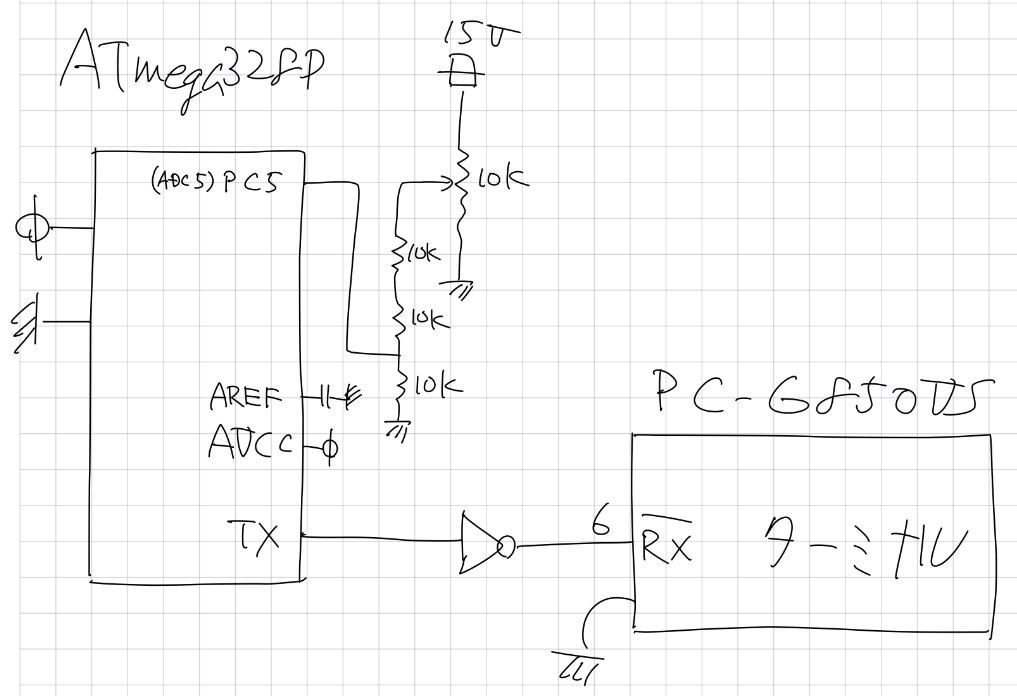 ATmega328P
15V
(ADC5) PC5
10K
10K
10K
10K
AREF
AVCC
TX
PC-G850VS
6
RX
ターミナル